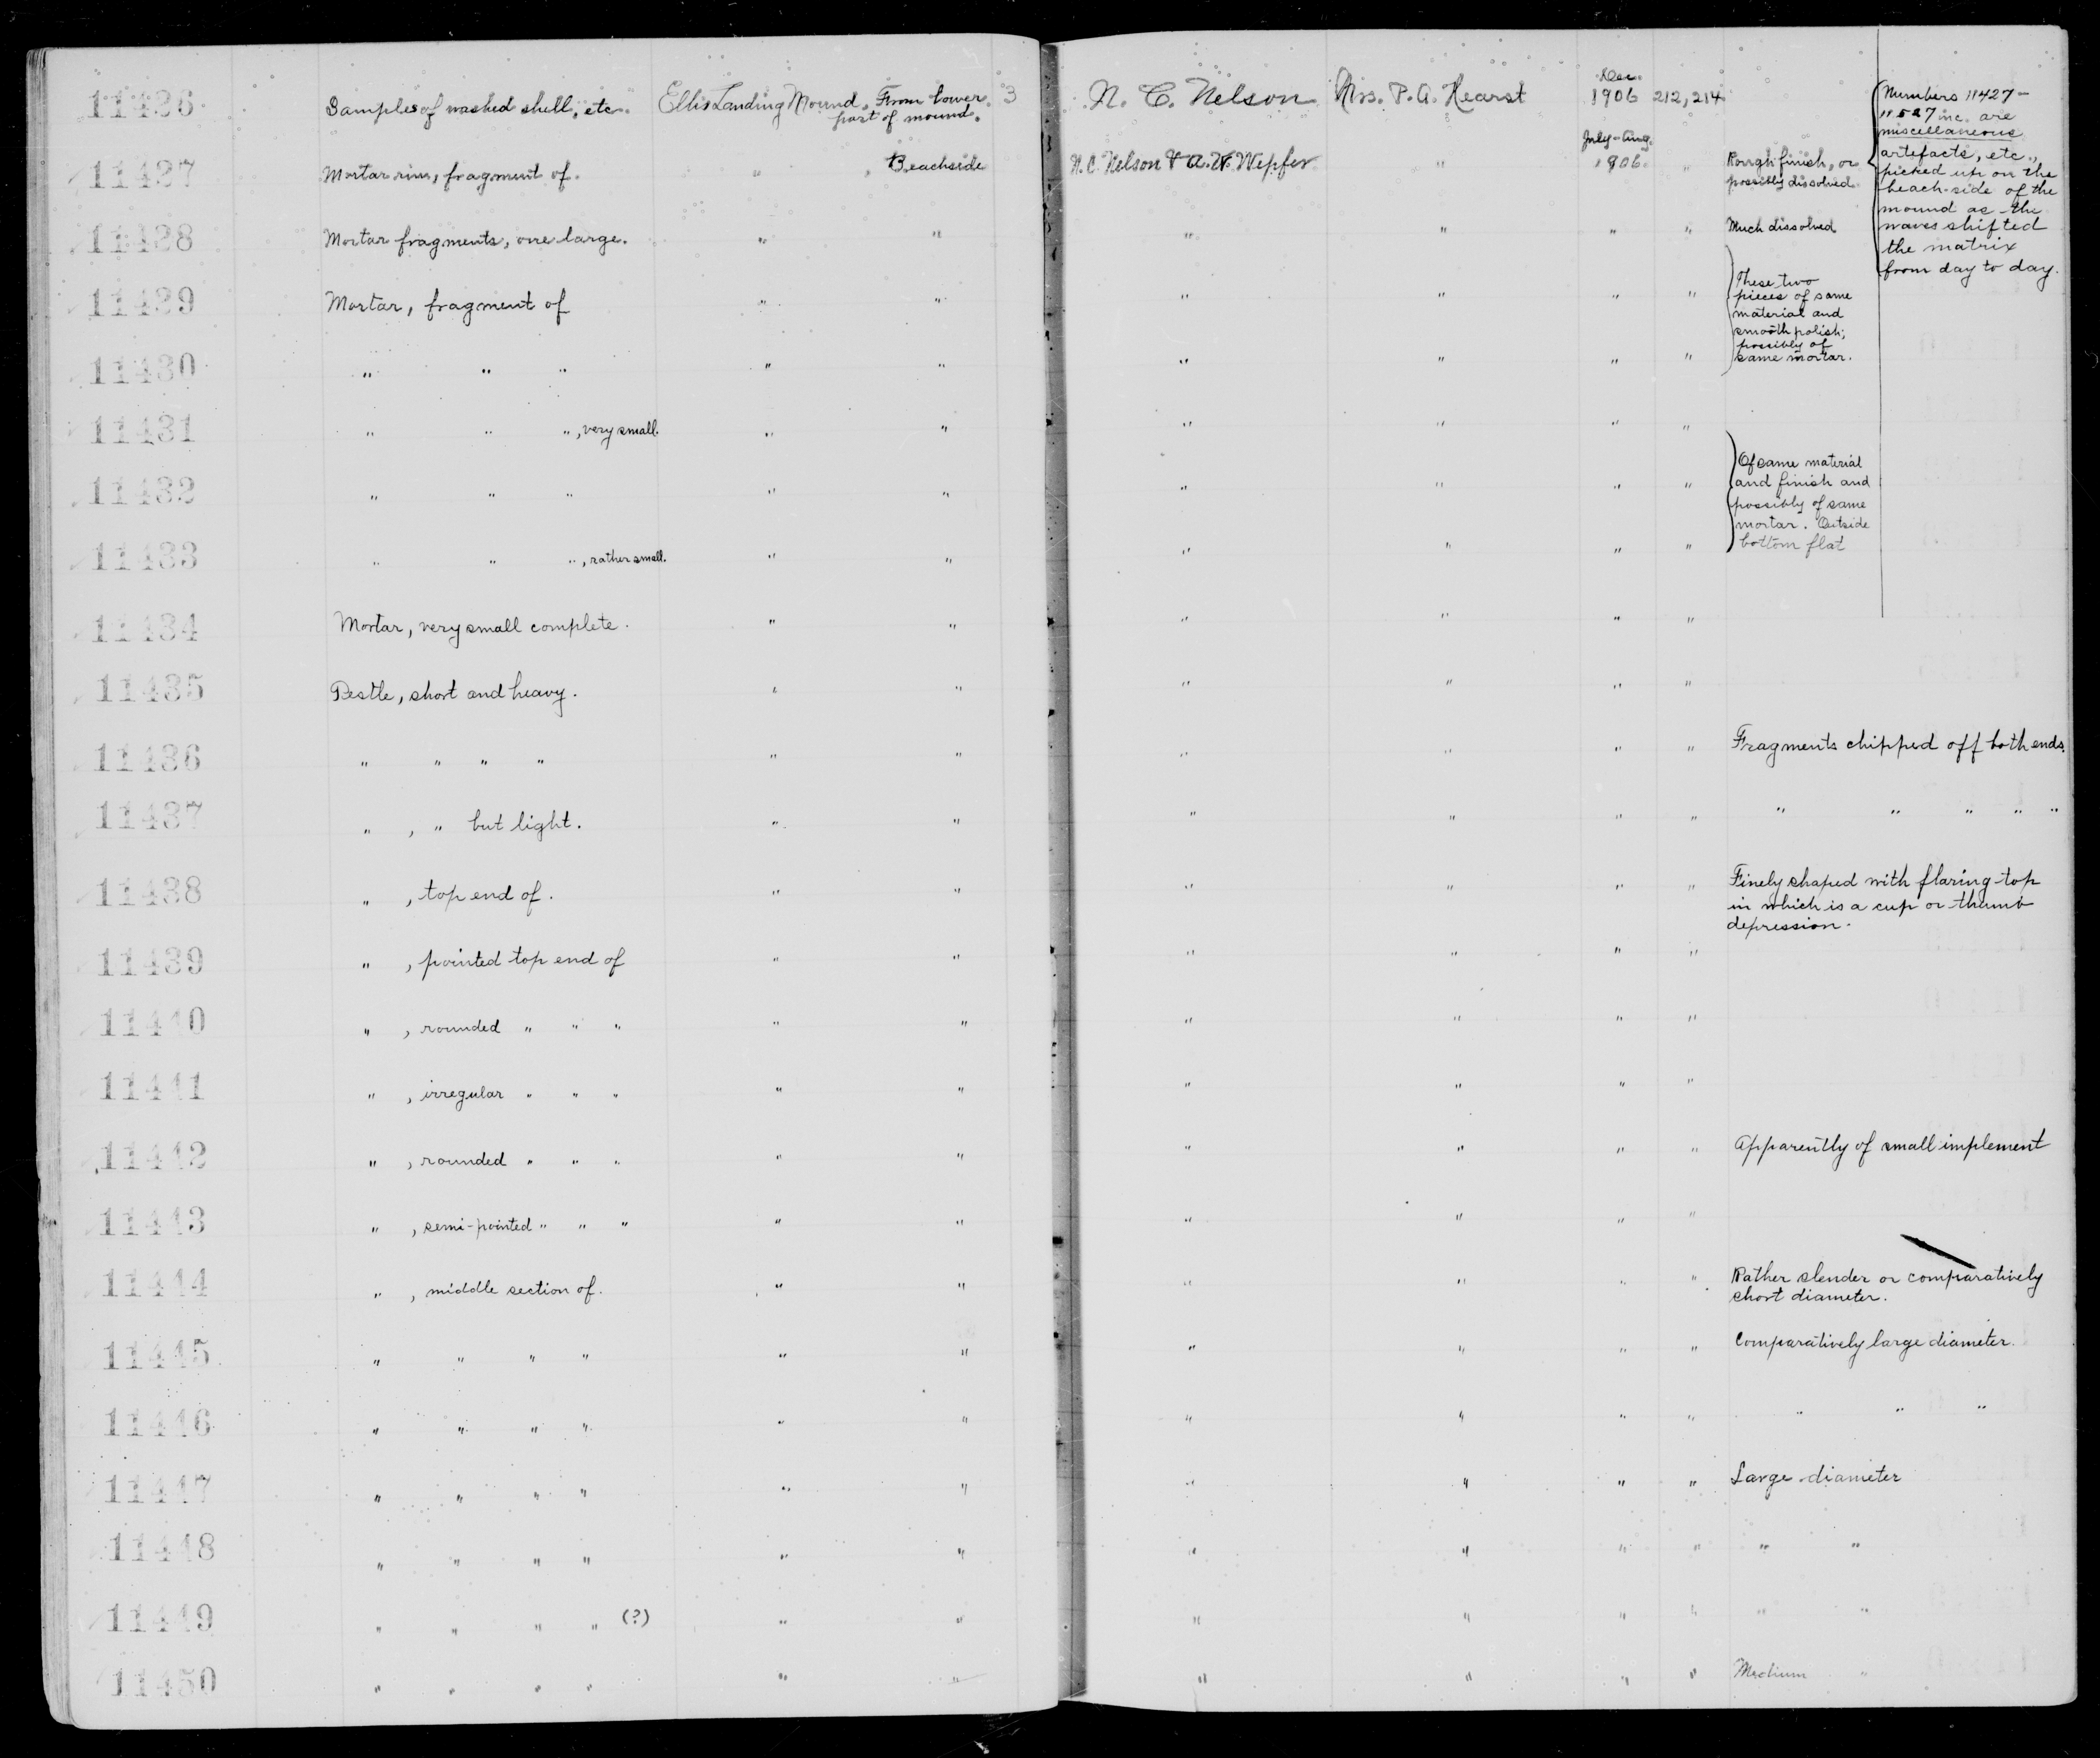 11426 Samples of washed shell, etc. Ellis Landing Mound. From lower part of mound. 3 N. C. Nelson Mrs. P. A. Hearst Dec. 1906 212, 214
11427 Mortar rim, fragment of. " " Beachside N. C. Nelson & A. W. Wepfer " July-Aug. 1906. " Rough finish, or possibly dissolved.
Numbers 11427-
11527 inc. are
miscellaneous
artefacts, etc.,
picked up on the
beach-side of the
mound as the
waves shifted
the matrix
from day to day.
11428 Mortar fragments, one large. " " " " " " Much dissolved
11429 Mortar, fragment of " " " " " "
These two
pieces of same
material and
smooth polish;
possibly of
same mortar.
11430 " " " " " " " " "
11431 " " ", very small. " " " " " "
11432 " " " " " " " " "
Of same material
and finish and
possibly of same
mortar. Outside
bottom flat
11433 " " ", rather small. " " " " " "
11434 Mortar, very small complete. " " " " " "
11435 Pestle, short and heavy. " " " " " "
11436 " " " " " " " " " " Fragments chipped off both ends.
11437 " , " but light. " " " " " " " " " " "
11438 " , top end of. " " " " " " Finely shaped with flaring top
in which is a cup or thumb
depression.
11439 " , pointed top end of " " " " " "
11440 " , rounded " " " " " " " " "
11441 " , irregular " " " " " " " " "
11442 " , rounded " " " " " " " " " Apparently of small implement
11443 " , semi-pointed " " " " " " " " "
11444 " , middle section of. " " " " " " Rather slender or comparatively
short diameter.
11445 " " " " " " " " " " Comparatively large diameter.
11446 " " " " " " " " " " " " "
11447 " " " " " " " " " " Large diameter
11448 " " " " " " " " " " " "
11449 " " " " (?) " " " " " " " "
11450 " " " " " " " " " " Medium "